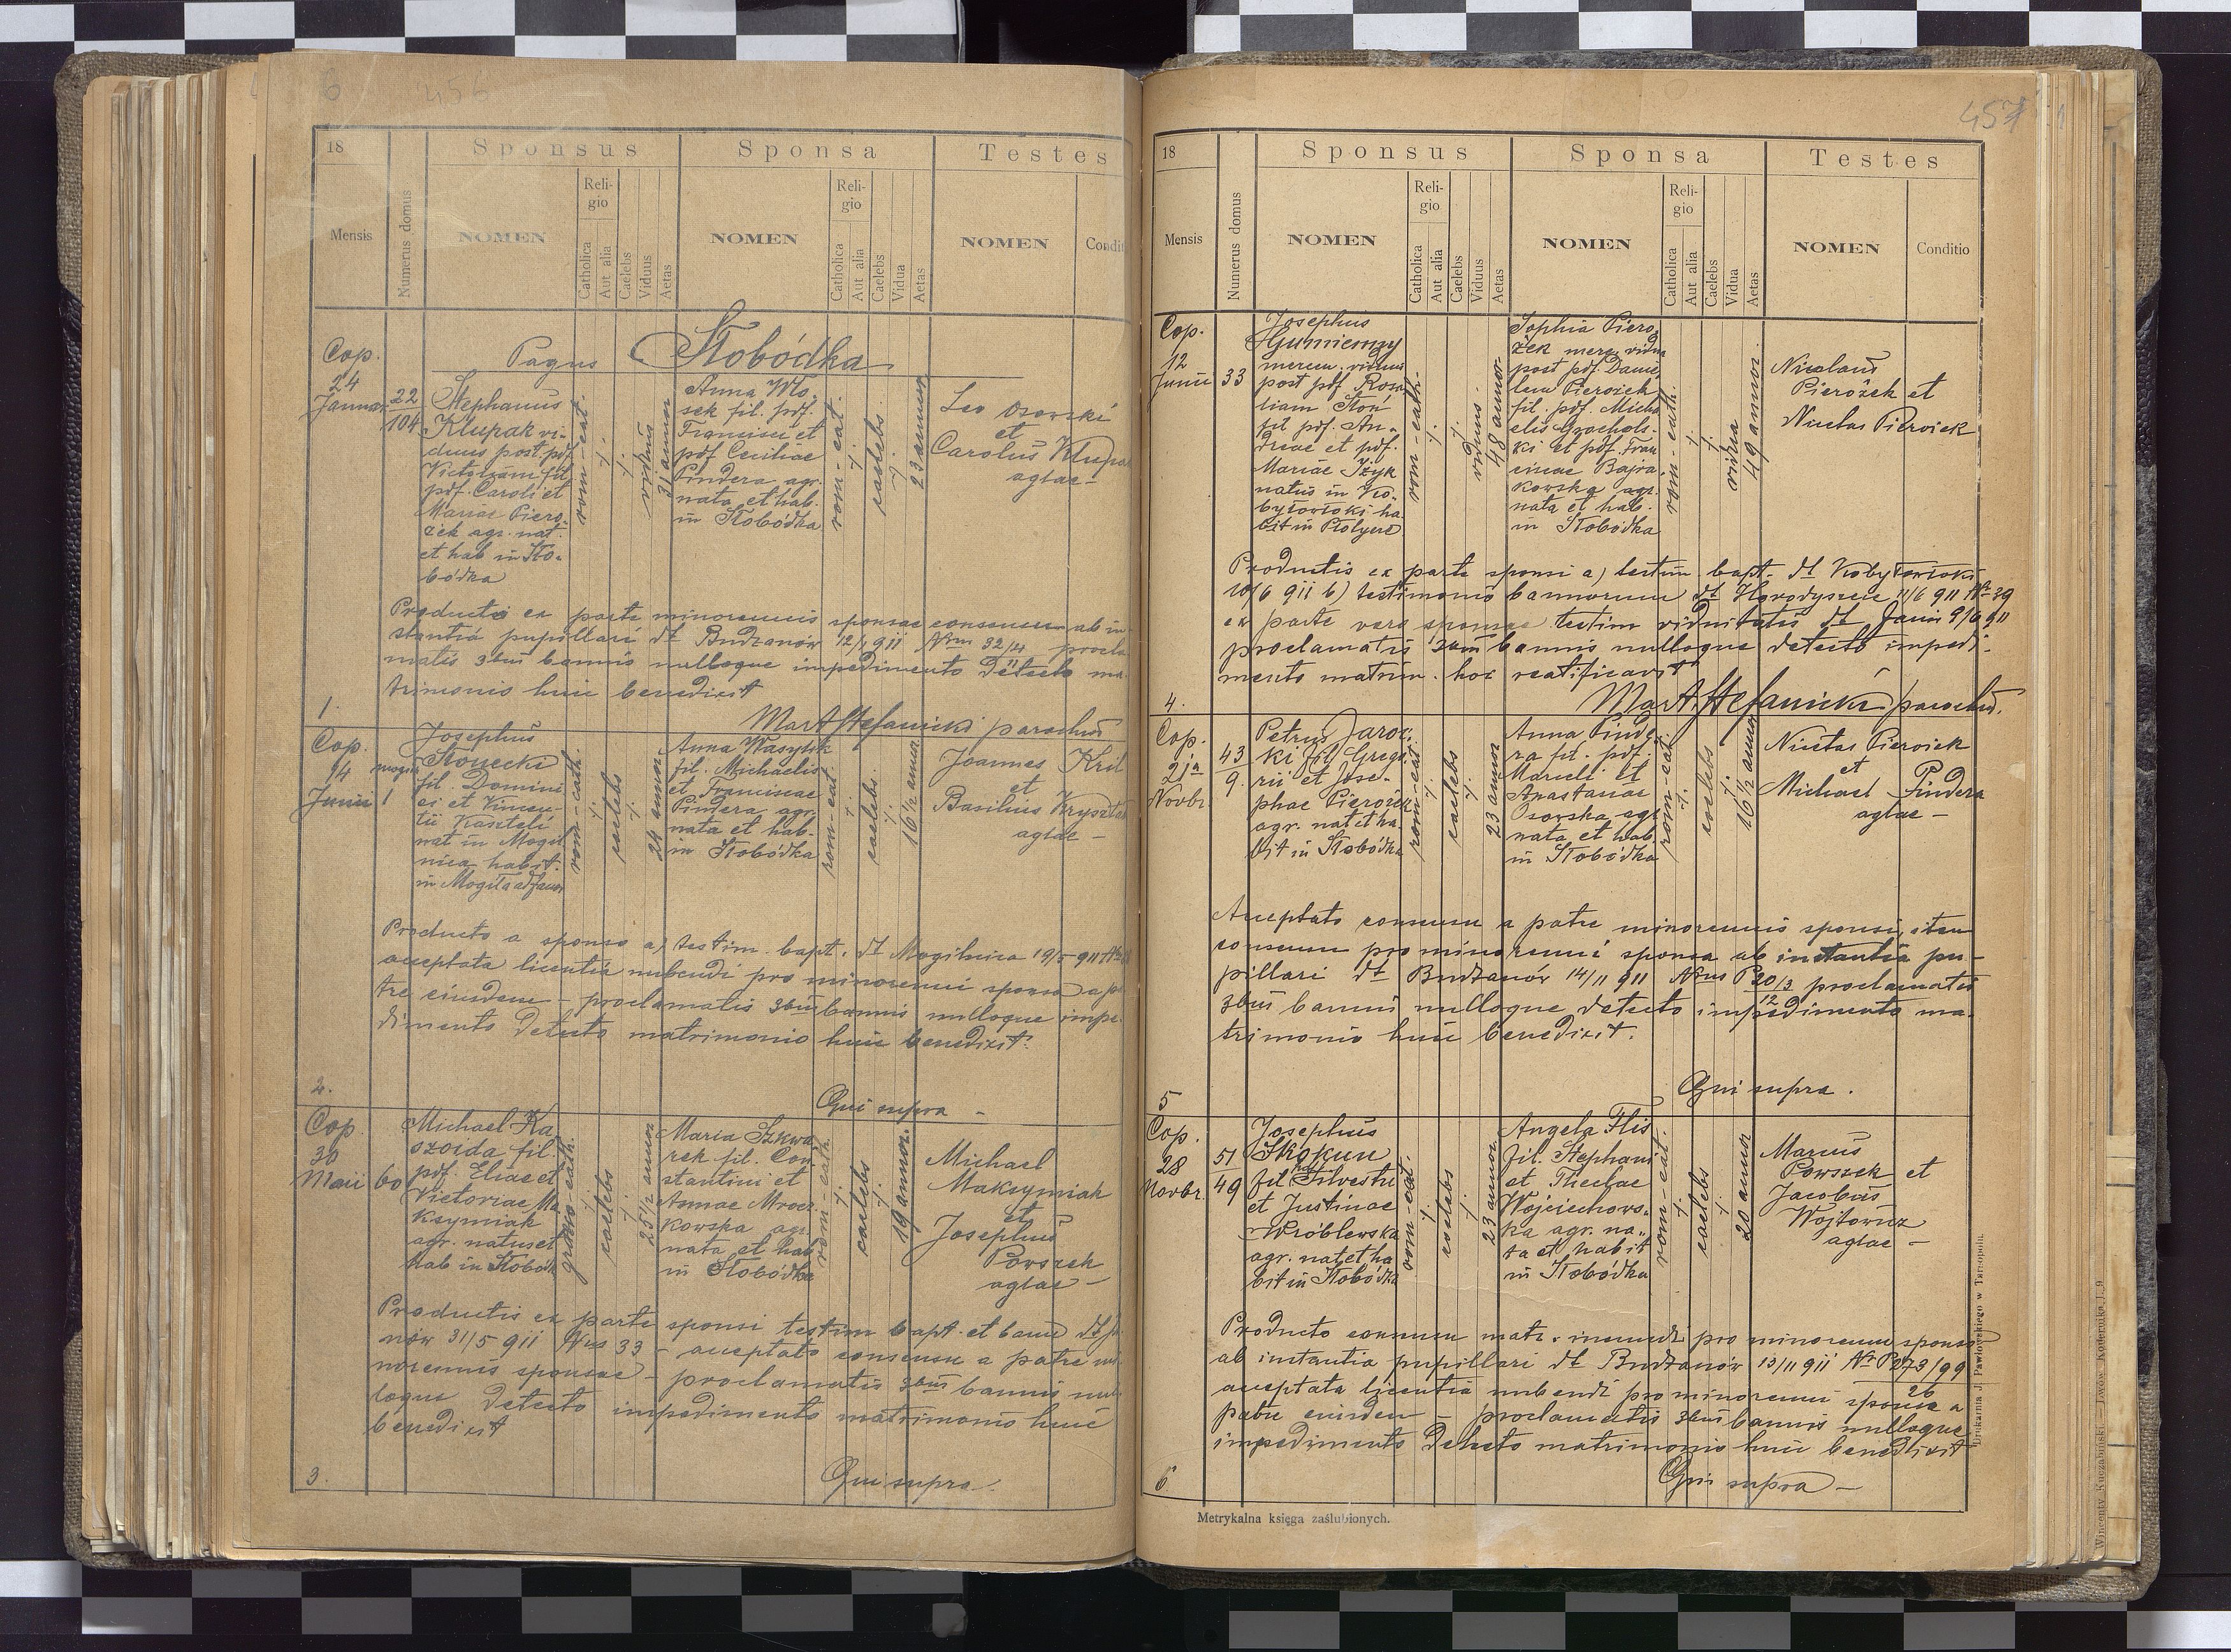 456
18
Sponsus
Sponsa
Testes
Mensis
Numerus domus
NOMEN
Religio
Catholica
Aut alia
Caelebs
Viduus
Aetas
NOMEN
Religio
Catholica
Aut alia
Caelebs
Vidua
Aetas
NOMEN
Condit
Pagus Słobódka
Cop.
24
Januar
22
104
Stephanus
Klupak vi-
duus post pdf
Victoriam fil.
pdf. Caroli et
Mariae Piero-
żek agr. nat.
et hab in Sło-
bódka
rom-cat.
viduus
31 annor
Anna Wło-
sek fil. pdf.
Francisci et
pdf Ceciliae
Pindera agr.
nata et hab.
in Słobódka
rom-cat.
caelebs
23 annor
Leo Osowski
et
Carolus Klupa
aglae-
Productis ex parte minorennis sponsae consensu ab in-
stantia pupillari dt Budzanów 12/1 911 Nrus 32/4 procla
matis 3bus bannis nulloque impedimento detecto ma-
trimonio huic benedixit
1.
MarAStefanicki parochus
Cop.
14
Junii
1
Josephus
Słonecki
fil. Domini
ci et Vincen-
tii Kaszteli
nat in Mogil
nica habit.
in Mogiła ad Janów
rom-cath.
caelebs
24 annor
Anna Wasylik
fil. Michaelis
et Franciscae
Pindera agr.
nata et hab.
in Słobódka
rom-cat.
caelebs.
16½ annor
Joannes Kril
et
Basilius Kryszta
aglae-
Producto a sponso a) testim. bapt. dt Mogilnica 19/5 911
acceptata licentia nubendi pro minorenni sponsa a pa
tre eiusdem - proclamatis 3bus bannis nulloque impe-
dimento detecto matrimonio huic benedixit.
2.
Qui supra -
Cop
30
Maii
60
Michael Ka
szoida fil.
pdf. Eliae et
Victoriae Ma
ksymiak
agr. natus et
hab in Słobód
graeco-cath.
caelebs
25½ annor
Maria Szkwa
rek fil. Con
stantini et
Annae Mrocz
kowska agr.
nata et hab
in Słobódka
rom-cath.
caelebs
19 annor.
Michael
Maksymiak
et
Josephus
Powszek
aglae-
Productis ex parte sponsi testim bapt. et bann dt Ja
nów 31/5 911 Nrus 33 - acceptato consensu a patre mi
norennis sponsae - proclamatis 3bus bannis nul
loque detecto impedimento matrimonio huic
benedixit
3.
Qui supra.
457
18
Sponsus
Sponsa
Testes
Mensis
Numerus domus
NOMEN
Religio
Catholica
Aut alia
Caelebs
Viduus
Aetas
NOMEN
Religio
Catholica
Aut alia
Caelebs
Vidua
Aetas
NOMEN
Conditio
Cop.
12
Junii
33
Josephus
Humienny
mercen. viduus
post pdf Rosa
liam Słoń
fil pdf. An-
dreae et pdf.
Mariae Iżyk
natus in Ko-
byłowłoki ha-
bit in
rom-cath.
viduus.
48 annor
Sophia Piero
żek merc. vidua
post pdf. Danie
lem Pierożek
fil. pdf. Micha
elis Grochols-
ki et pdf. Fran
ciscae Bajra
kowska agr.
nata et hab.
in Słobódka
rom-cath.
vidua
49 annor.
Nicolaus
Pierożek et
Nicetas Pierożek
Productis ex parte sponsi a) testim. bapt. dt Kobyłowłoki
10/6 911 b) testimonio bannorum dt Horodyszcze 11/6 911 Nr 39
ex parte vero sponsae testim viduitatis dt Janów 9/6 911
proclamatis 3bus bannis nulloque detecto impedi-
mento matrim. hoc ratificavit
4.
MarAStefanicki parochus.
Cop.
21a
Novbr.
43
9.
Petrus Jaroc
ki fil Grego
rii et Jose-
phae Pierożek
agr. nat et ha
bit in Słobódka
rom-cat.
caelebs
23 annor
Anna Pinde
ra fil. pdf.
Marceli et
Anastasiae
Osowska agr
nata et hab.
in Słobódka
rom-cat.
caelebs
16½ annor
Nicetas Pierożek
et
Michael Pindera
aglae-
Acceptato consensu a patre minorennis sponsi, item
consensu pro minorenni sponsa ab instantia pu-
pillari dt Budzanów 14/11 911 Nrus P 20/3 proclamatis
12
3bus bannis nulloque detecto impedimento ma-
trimonio huic benedixit.
5
Qui supra.
Cop.
28
Novbr.
51
49
Josephus
Skokun
fil Silvestri
et Justinae
Wróblewska
agr. nat et ha
bit in Słobódka
rom-cat.
caelebs
23 annor.
Angela Flis
fil. Stephani
et Theclae
Wojciechows-
ka agr. na-
ta et habit
in Słobódka
rom-cat.
caelebs
20 annor
Marcus
Powszek et
Jacobus
Wojtowicz
aglae-
Producto consensu matr. ineundi pro minorenni sponso
ab instantia pupillari dt Budzanów 13/11 911 Nr P 273/99
26
acceptata licentia nubendi pro minorenni sponsa a
patre eiusdem - proclamatis 3bus bannis nulloque
impedimento detecto matrimonio huic benedixit
6
Qui supra-
Metrykalna księga zaślubionych.
Drukarnia J. Pawłowskiego w Tarnopolu.
Wincenty Kuczabiński - Lwów Kopernika l. 9